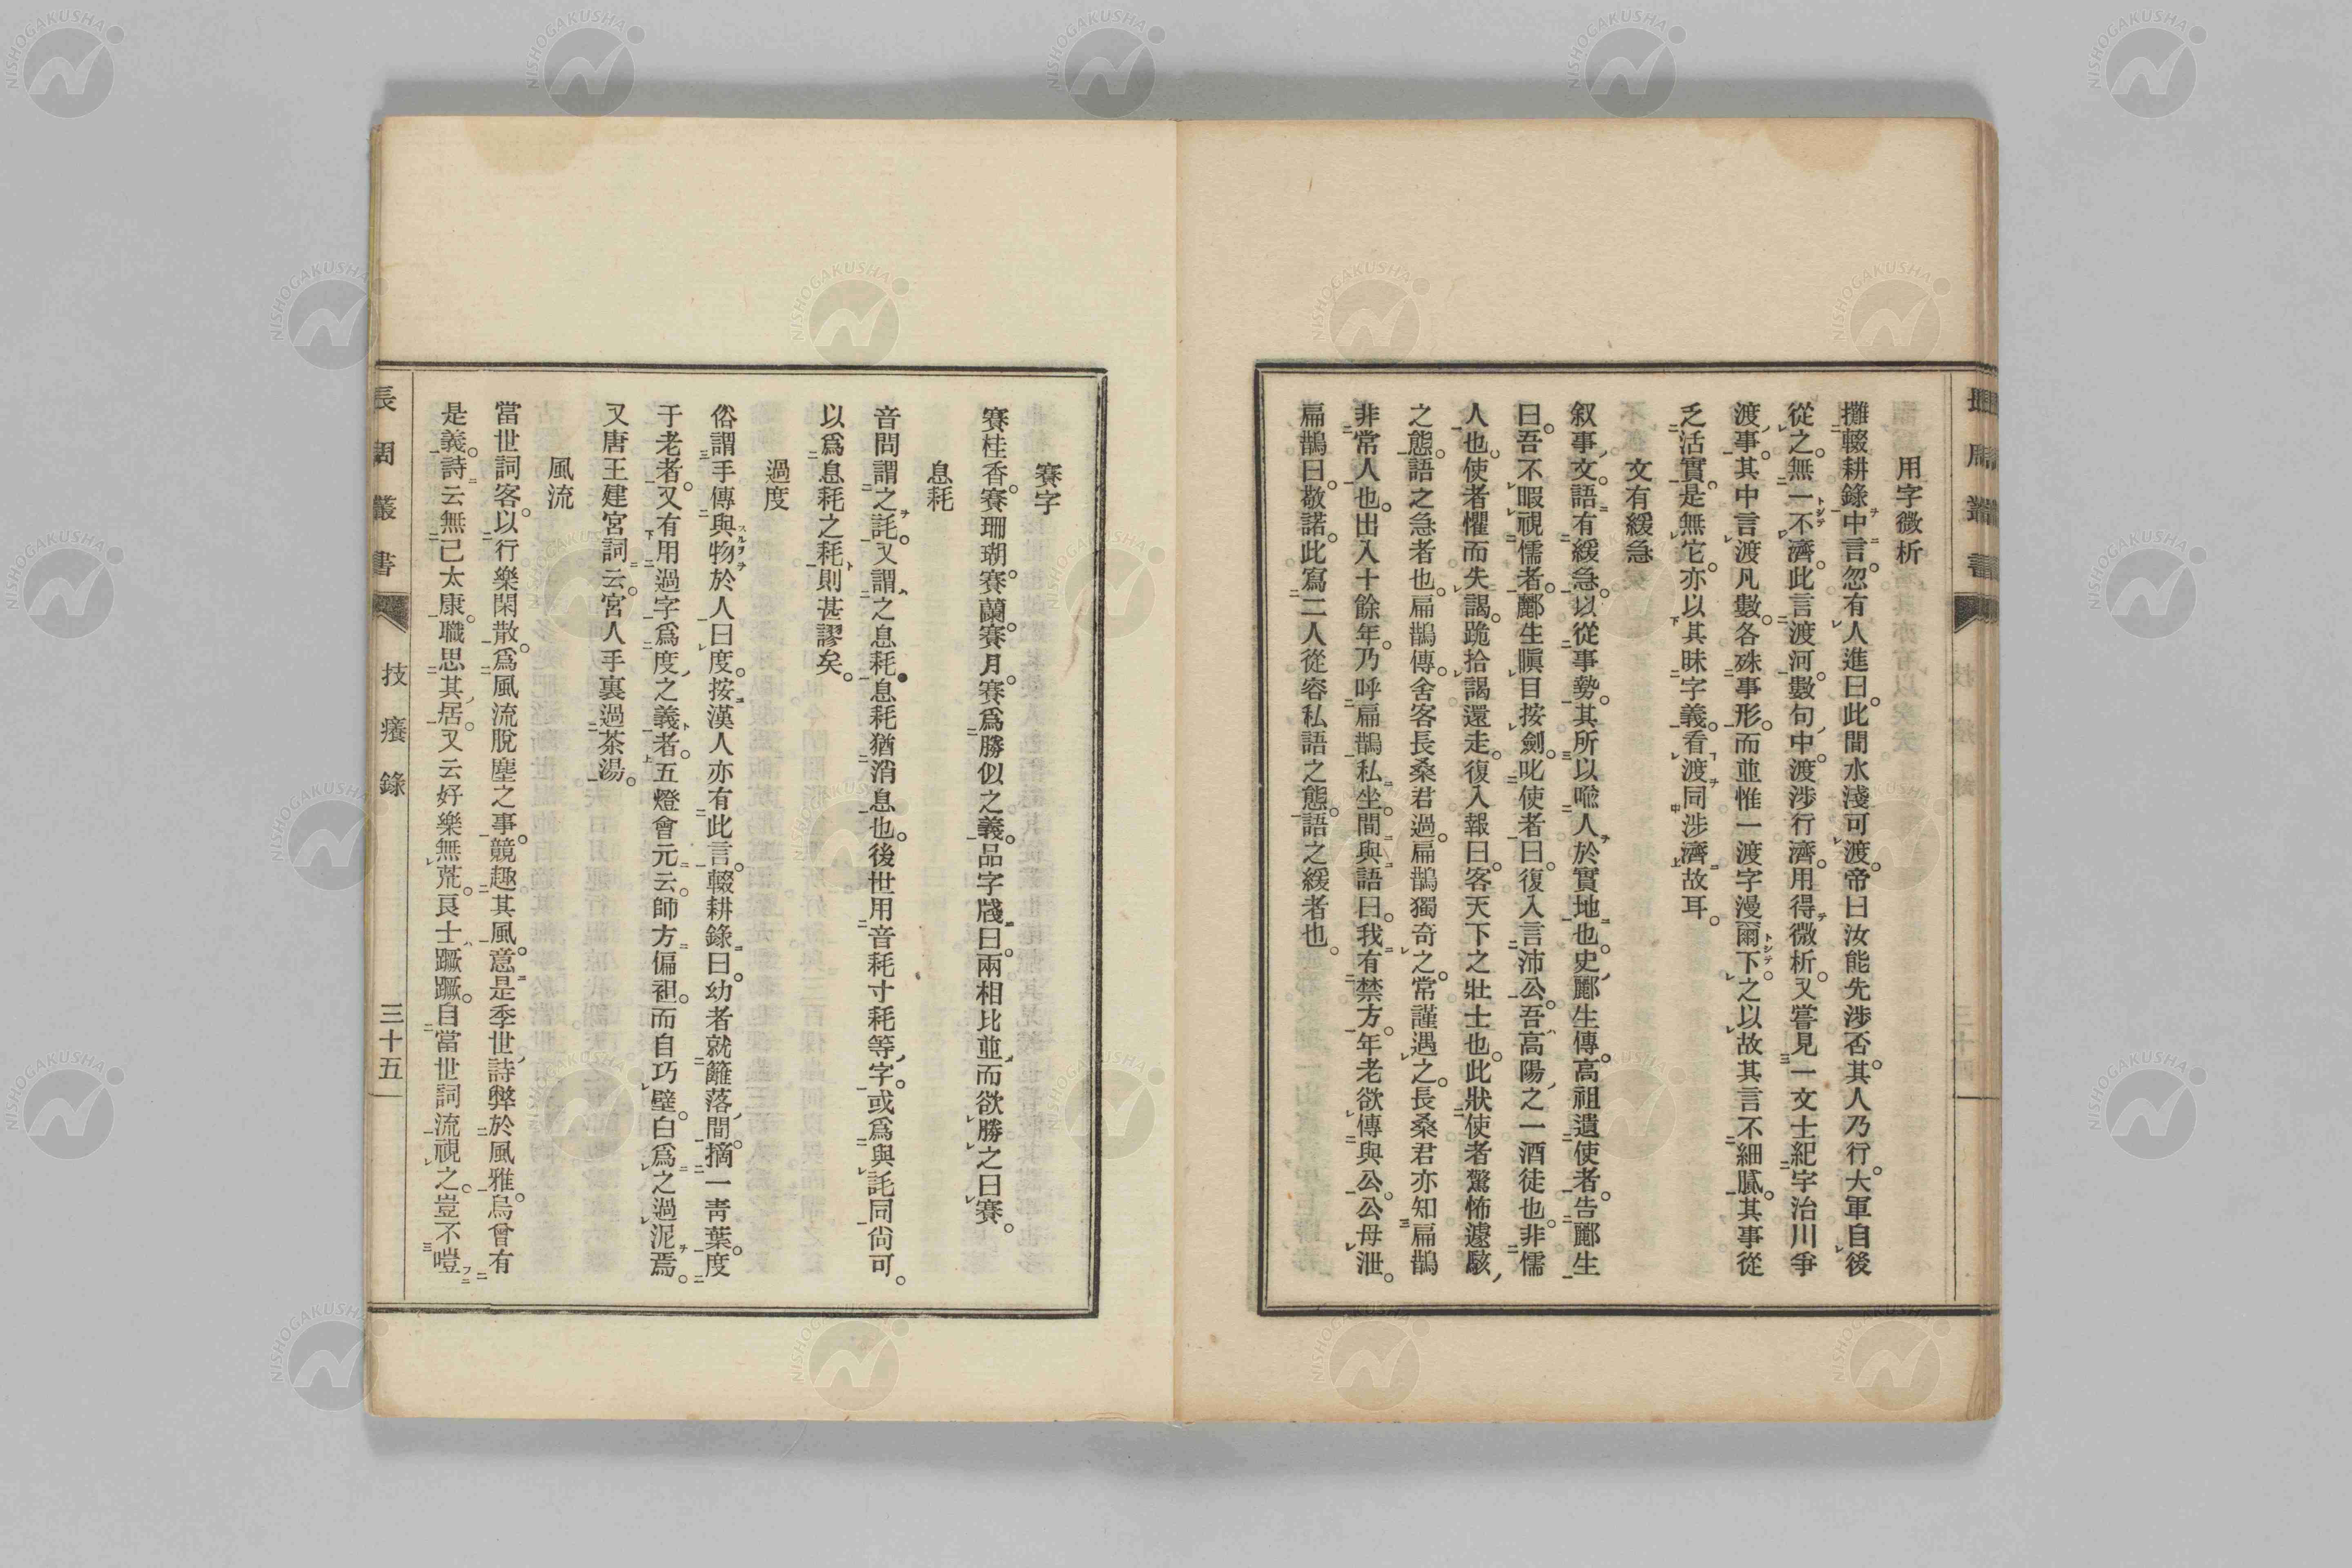 用字微析
攤輟耕錄中言。忽有人進曰。此間水淺可渡。帝曰汝能先渉否。其人乃行。大軍自後
從之。無一不濟。此言渡河。數句中。渡渉行濟。用得微析。又嘗見一文士紀宇治川爭
渡事。其中言渡凡數。各殊事形。而並惟一渡字漫爾下。之以故其言不細膩。其事從
乏活實。是無它。亦以其昧字義。看渡同渉濟故耳。
文有緩急
叙事文。語有緩急。以從事勢。其所以喩人於實地也。史酈生傳。高祖遣使者。告酈生
曰。吾不暇視儒者。酈生瞋目按劍。叱使者曰。復入言沛公。吾高陽之一酒徒也。非儒
人也。使者懼而失謁。跪拾謁還走。復入報曰。客天下之壯士也。此狀使者驚怖遽駭
之態。語之急者也。扁鵲傳。舍客長桑君過。扁鵲獨奇之。常謹遇之。長桑君亦知扁鵲
非常人也。出入十餘年。乃呼扁鵲私坐。間與語曰。我有禁方。年老欲傳與公。公母泄。
扁鵲曰。敬諾。此寫二人從容私語之態。語之緩者也。
賽字
賽桂香。賽珊瑚。賽蘭。賽月。賽爲勝似之義。品字牋曰。兩相比並而欲勝之曰賽。
息耗
音問謂之託。又謂之息耗。息耗猶消息也。後世用音耗寸耗等字。或爲與託同尙可。
以爲息耗之耗則甚謬矣。
過度
俗謂手傳與物於人曰度。按漢人亦有此言。輟耕錄曰。幼者就籬落間。摘一靑葉。度
于老者。又有用過字爲度之義者。五燈會元云。師方偏袒。而自巧壁。白爲之過泥焉。
又唐王建宮詞云。宮人手裏過茶湯。
風流
當世詞客。以行樂閑散。爲風流脫塵之事。競趣其風。意是季世詩弊於風雅。烏曾有
是義。詩云無已太康。職思其居。又云好樂無荒。良士蹶蹶。自當世詞流視之。豈不噎
長周叢書
技癢錄
三十五
NISHOGAKUSHA